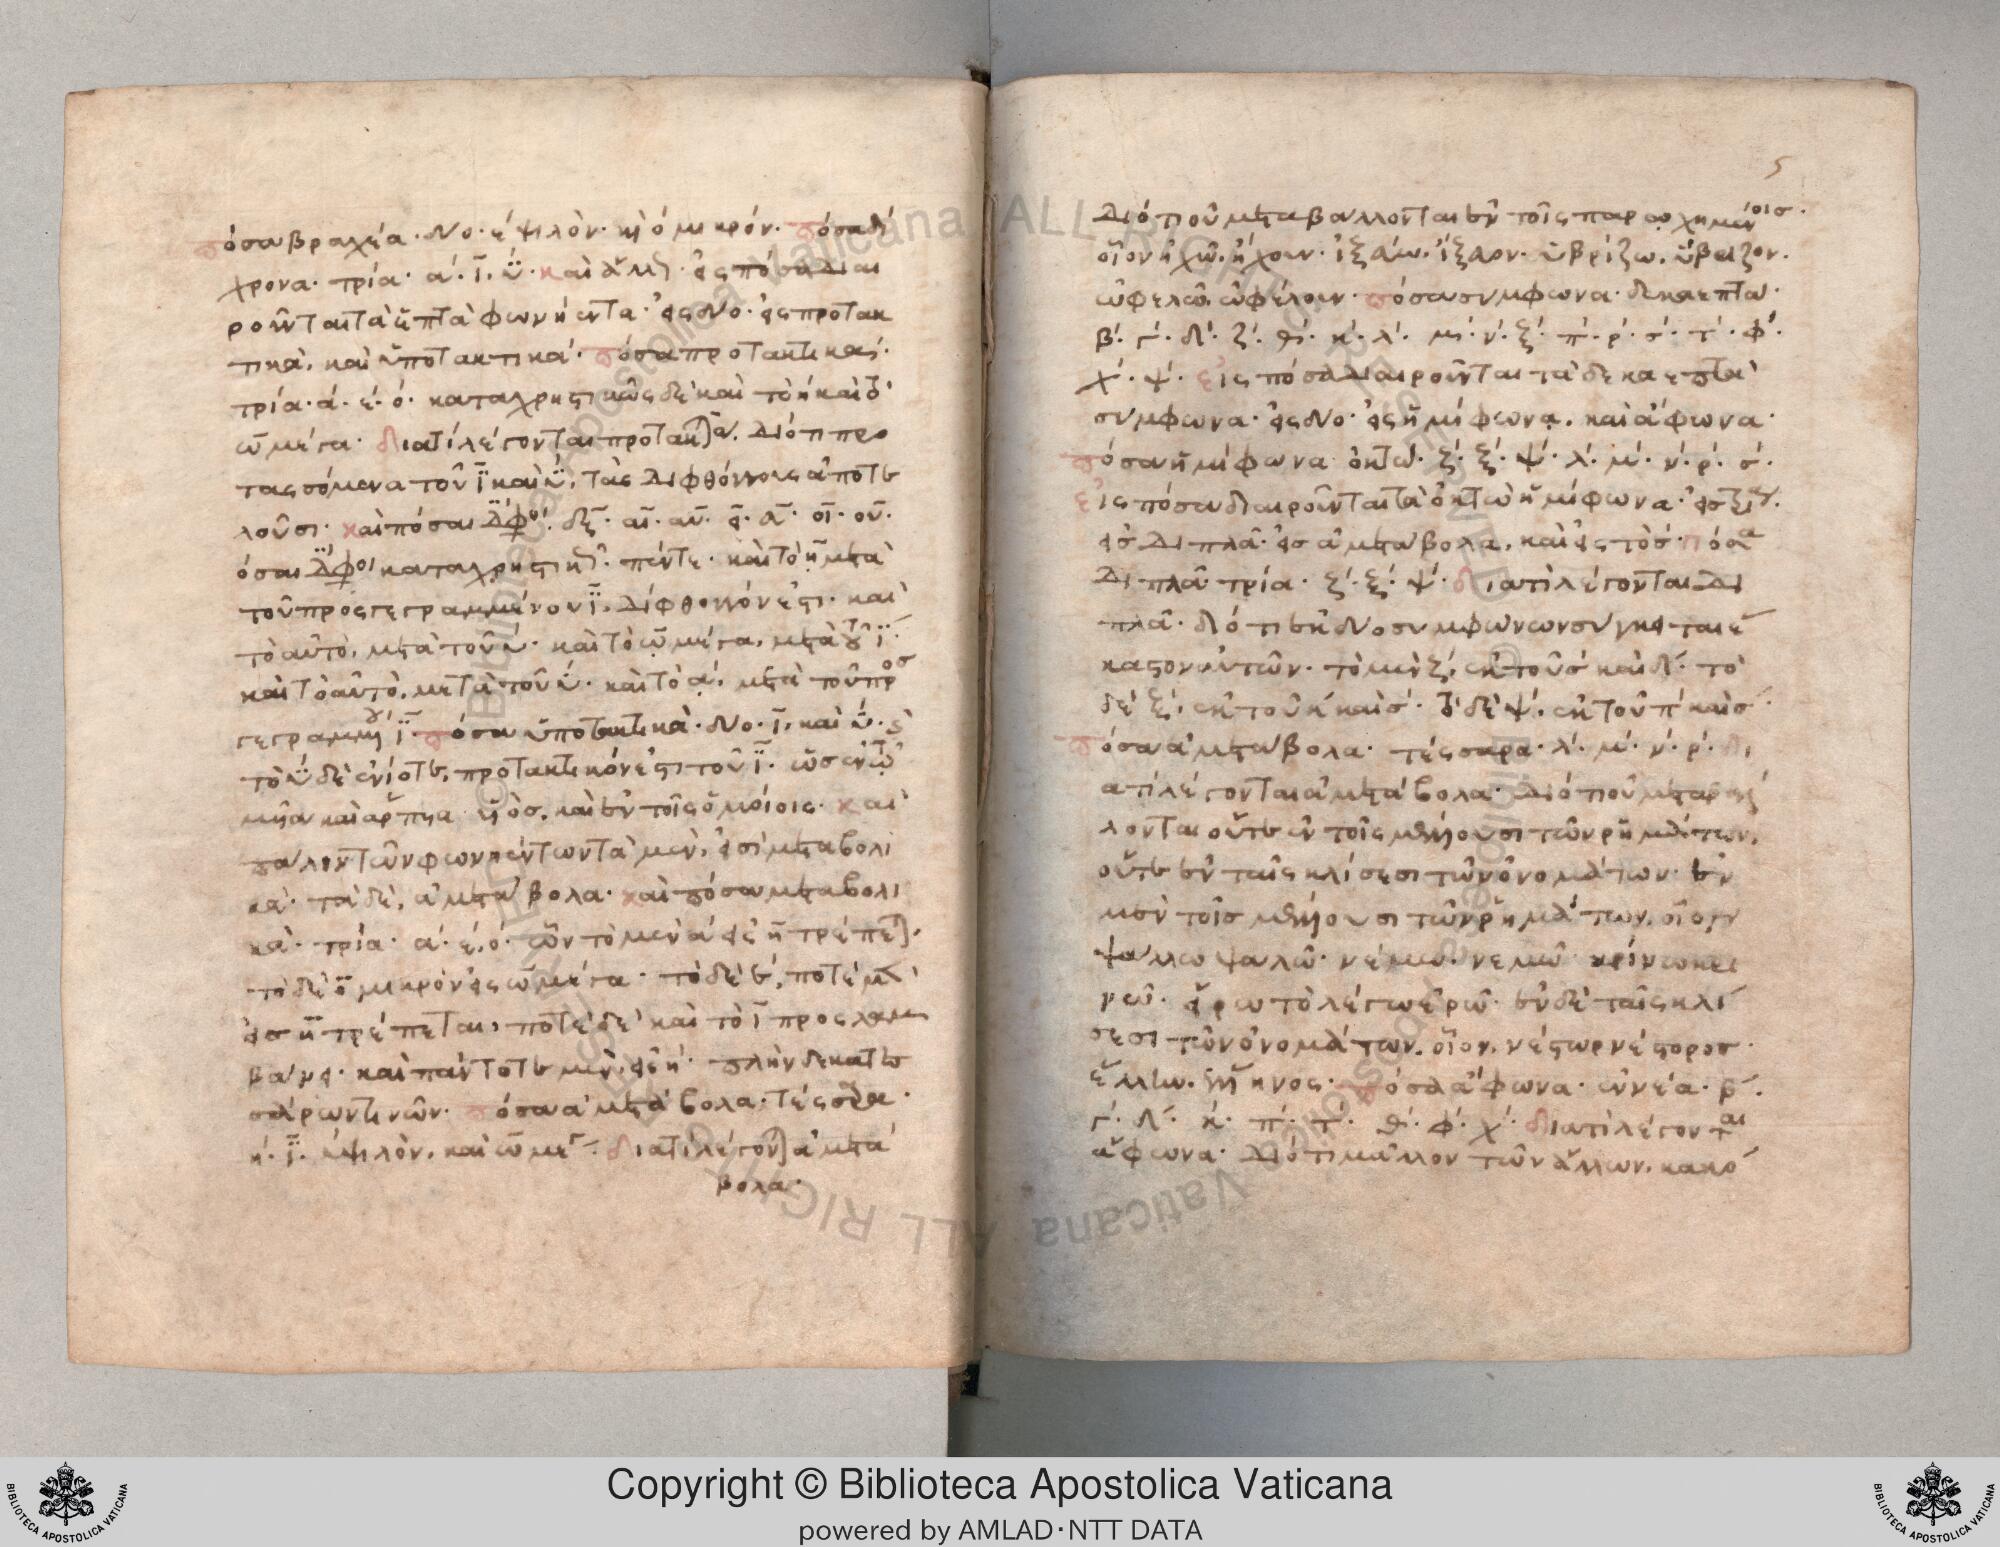 πόσα βραχέα· δύο· ἐψιλὸν· κὴ ὀμικρόν· πόσα δί
χρονα· τρία· α´· ϊ, ϋ· καὶ ἄλλ· εἰς πόσα διαι
ροῦνται τὰ ἑπτὰ φωνήεντα· εἰς δύο· εἰς προτακ
τικὰ, καὶ ὑποτακτικά· πόσα προτακτικά·
τρία· ά· έ· ό· καταχρηστικῶς δὲ καὶ τὸ ή καὶ τὸ
ὦ μέγα· διατί λέγονται προτακτικά, Διότι προ
τασσόμενα τοῦ ϊ καὶ ϋ, τὰς διφθόγγους ἀποτε
λοῦσι· καὶ πόσαι δίφθογγοι
ὅσαι δίφθογγοι καταχρηστικαὶ· πέντε· καὶ τὸ η μετὰ
τοῦ προσγεγραμμένου ϊ, δίφθογγόν ἐστι· καὶ
τὸ αὐτὸ, μετὰ τοῦ ϋ· καὶ τὸ ὦ μέγα, μετὰ τοῦ ϊ·
καὶ τὸ αὐτὸ, μετὰ τοῦ ϋ· καὶ τὸ ά, μετὰ τοῦ προσ
γεγραμμένου ϊ· πόσα ὑποτακτικὰ· δύο· ϊ, καὶ ϋ·
τὸ ϋ δὲ ἐνίοτε, προτακτικόν ἐστι τοῦ ϊ· ὡς ἐν τῷ
μυῖα καὶ ἅρπυια υἱὸς, καὶ ἐν τοῖς ὁμοίοις· καὶ
πάλιν τῶν φωνηέντων τὰ μὲν, εἰσὶ μεταβολι
κά· τὰ δὲ, ἀμετάβολα· καὶ πόσα μεταβολι
κά· τρία· ά· έ, ό· ὧν τὸ μὲν ά εἰς η τρέπεται·
τὸ δὲ ο μικρὸν εἰς ὦ μέγα· τὸ δὲ ε, ποτὲ μὲν
εἰς η τρέπεται, ποτὲ δὲ καὶ τὸ ϊ προσλαμ
βάνει· καὶ πάντοτε μὲν εἰς ή· πλὴν δεκατε
σσάρων τινῶν· πόσα ἀμετάβολα· τέσσαρα·
ή· ϊ· ὐψιλὸν, καὶ ὦ μέγα· διατί λέγονται ἀμετά
βολα·
5
Διότι οὐ μεταβάλλονται ἐν τοῖς παρῳχημένοις·
οἷον ἠχῶ, ἤχουν· ἰξάω, ἴξαον· ὑβρίζω, ὕβριζον·
ὠφελῶ, ὠφέλουν· πόσα σύμφωνα· δεκαεπτά·
β´· γ´· δ´· ζ´· θ´· κ´· λ´· μ´· ν´· ξ´· π´· ρ´· σ´· τ´· φ´·
χ´· ψ´· εἰς πόσα διαιροῦνται τὰ δεκαεπτὰ
σύμφωνα· εἰς δύο· εἰς ἡμίφωνα, καὶ ἄφωνα·
πόσα ἡμίφωνα ὀκτώ· ζ´· ξ´· ψ´· λ´· μ´· ν´· ρ´· σ´·
εἰς πόσα διαιροῦνται τὰ ὀκτὼ ἡμίφωνα· εἰς τρία·
εἰς διπλᾶ· εἰς ἀμετάβολα, καὶ εἰς τὸ σ´· πόσα
διπλᾶ τρία· ζ´· ξ´· ψ´· διατί λέγονται δι
πλᾶ· διότι ἐκ δύο συμφώνων σύγκειται ἕ
καστον αὐτῶν· τὸ μὲν ζ´, ἐκ τοῦ σ´ καὶ δ´· τὸ
δὲ ξ´, ἐκ τοῦ κ´ καὶ σ´· τὸ δὲ ψ´, ἐκ τοῦ π´ καὶ σ´·
πόσα ἀμετάβολα· τέσσαρα· λ´· μ´· ν´· ρ´· δι
ατί λέγονται ἀμετάβολα· διότι οὐ μεταβάλ
λονται οὔτε ἐν τοῖς μέλλουσι τῶν ῥημάτων,
οὔτε ἐν ταῖς κλίσεσι τῶν ὀνομάτων· ἐν
μὲν τοῖς μέλλουσι τῶν ῥημάτων, οἷον
ψάλλω ψαλῶ· νέμω· νεμῶ κρίνω κρι
νῶ· εἴρω τὸ λέγω ἐρῶ· ἐν δὲ ταῖς κλί
σεσι τῶν ὀνομάτων, οἷον, νέστωρ νέστορος·
ἕλλην, ἕλληνος· πόσα ἄφωνα· ἐννέα· β´·
γ´· δ´· κ´· π´· τ´· θ´· φ´· χ´· διατί λέγονται
ἄφωνα· Διότι μᾶλλον τῶν ἄλλων, κακό
Copyright © Biblioteca Apostolica Vaticana
powered by AMLAD·NTT DATA